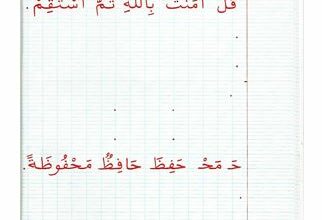 قُلْ آمَنْتُ بِاللَّهِ ثُمَّ اسْتَقِمْ.
حَـ مَحْـ حَفِظَ حَافِظٌ مَحْفُوظَةً.